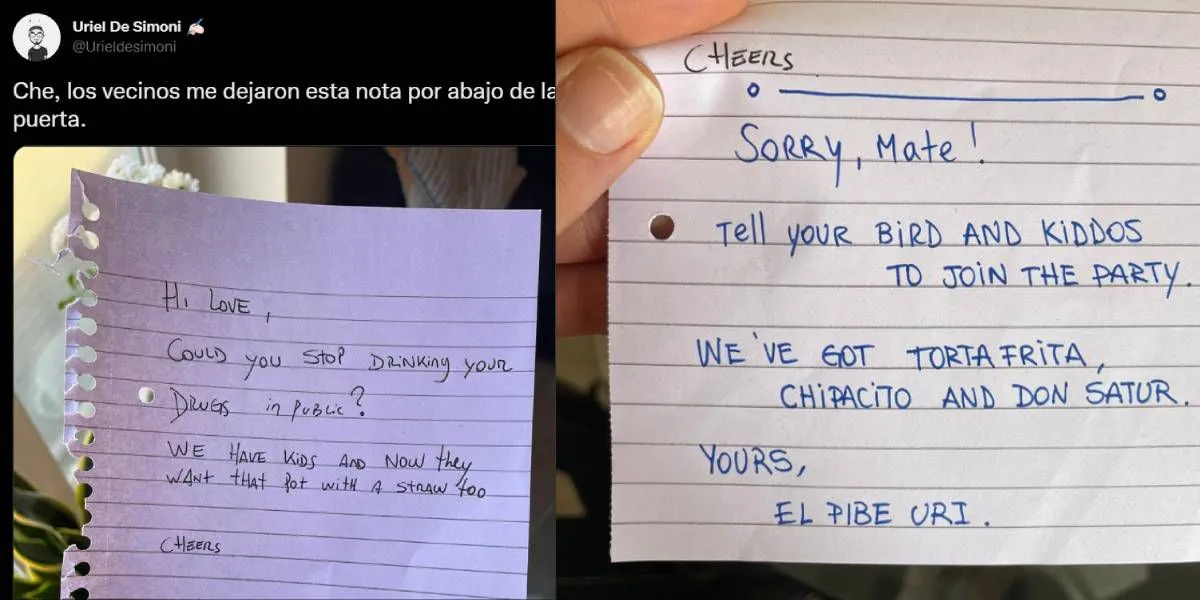 Uriel De Simoni ✍🏻
@Urieldesimoni
Che, los vecinos me dejaron esta nota por abajo de la
puerta.
Hi LOVE,
COULD YOU STOP DRINKING YOUR
DRUGS in PUBLIC?
WE HAVE KIDS AND NOW they
WANT tHAT Pot witH A STRAW too
CHEERS
CHEERS
SORRY, Mate!
Tell YOUR BiRD AND KiDDOS
TO JOiN THE PARTY.
WE'VE GOT TORTA FRITA,
CHiPACiTO AND DON SATUR.
YOURS,
EL PIBE URI.